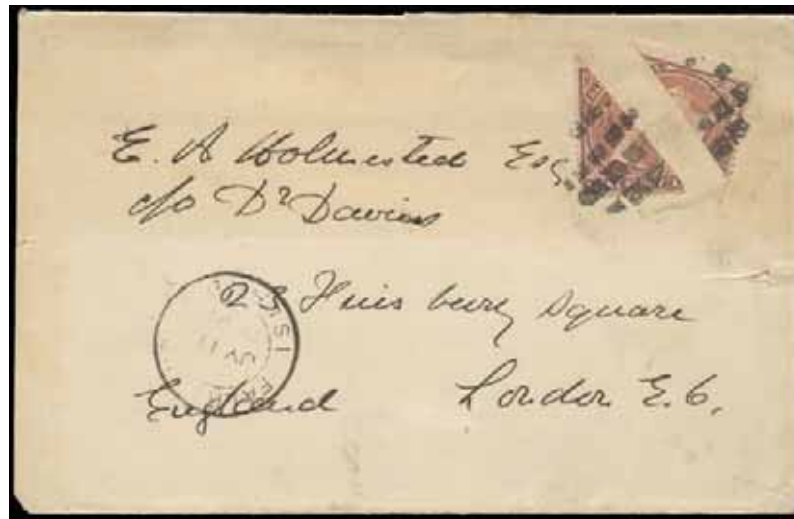 E. A Holmested Esq
c/o Dr Davies
23 Finsbury Square
England London E.C.